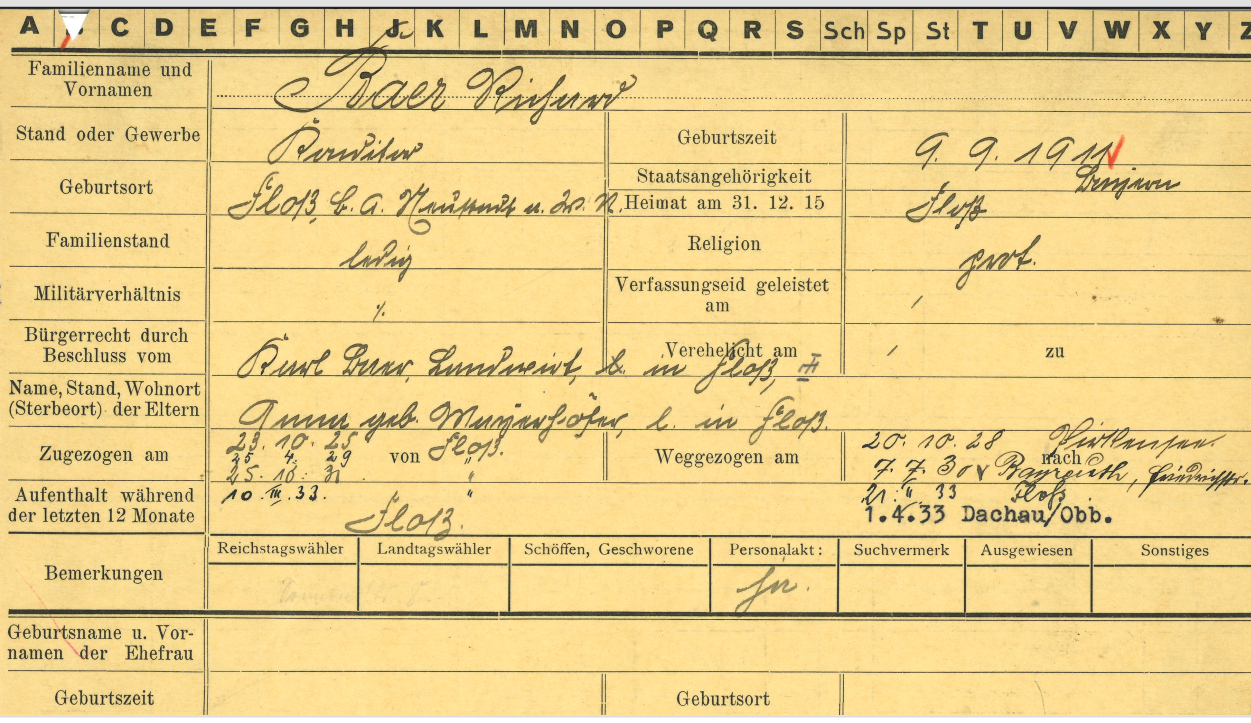 A C D E F G H J K L M N O P Q R S Sch Sp St T U V W X Y Z
Familienname und
Vornamen
Baer Richard
Stand oder Gewerbe
Konditor
Geburtszeit
9. 9. 1911
Geburtsort
Floß, b. A. Neustadt a. W. N.
Staatsangehörigkeit
Bayern
Heimat am 31. 12. 15
Floß
Familienstand
ledig
Religion
prot.
Militärverhältnis
Verfassungseid geleistet
am
Bürgerrecht durch
Beschluss vom
Verehelicht am
zu
Karl Baer, Landwirt, in Floß,
Name, Stand, Wohnort
(Sterbeort) der Eltern
Anna geb. Mayerhöfer, l. in Floß.
Zugezogen am
23. 10. 25 von Floß.
25 4. 29 "
25. 10. 31 "
10. III. 33. "
Weggezogen am
20. 10. 28 Pirkensee
nach
7. 7. 30 Bayreuth, Friedrichstr.
21. " 33 Floß
1.4.33 Dachau/Obb.
Aufenthalt während
der letzten 12 Monate
Floß.
Bemerkungen
Reichstagswähler
Landtagswähler
Schöffen, Geschworene
Personalakt:
ja.
Suchvermerk
Ausgewiesen
Sonstiges
Geburtsname u. Vor-
namen der Ehefrau
Geburtszeit
Geburtsort